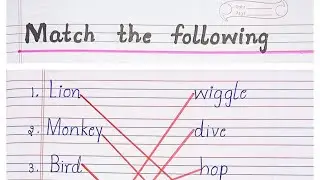 Match the following
1. Lion wiggle
2. Monkey dive
3. Bird hop